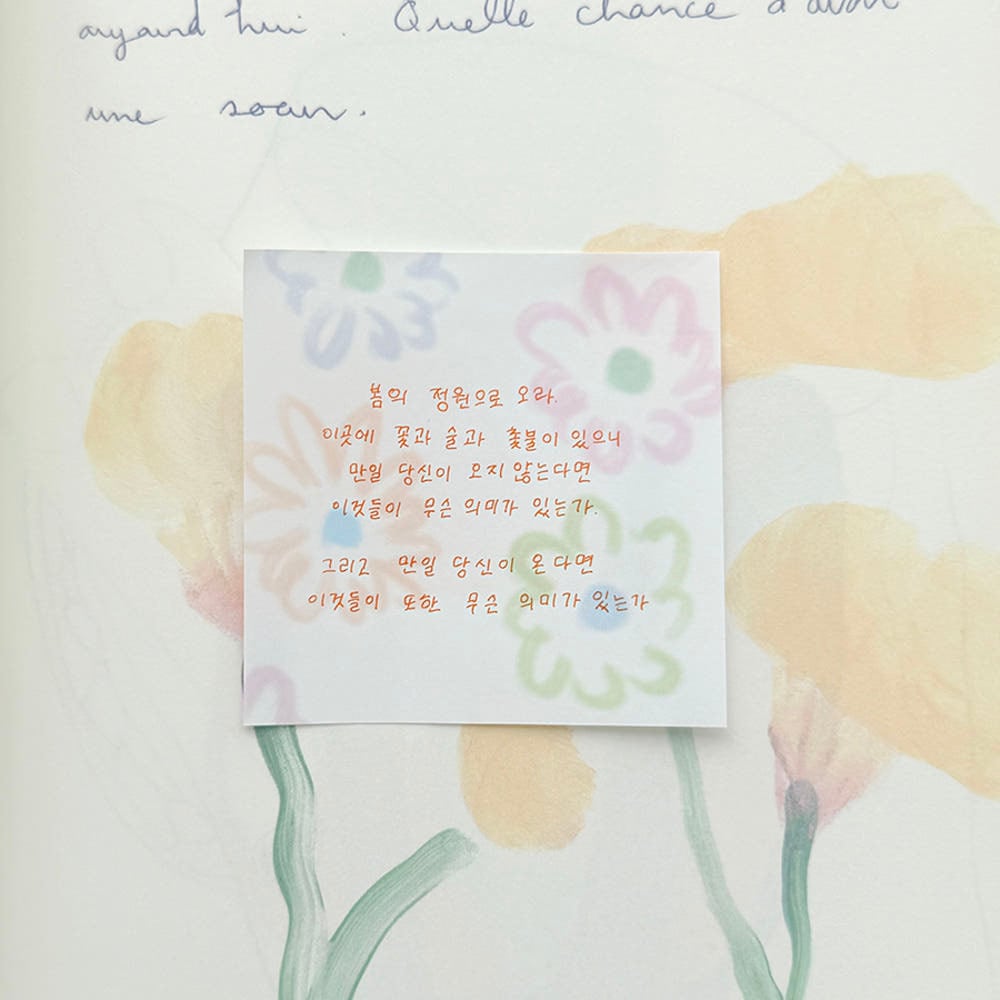 aujourd'hui. Quelle chance d'avoir
une soeur.
봄의 정원으로 오라.
이곳에 꽃과 술과 촛불이 있으니
만일 당신이 오지 않는다면
이것들이 무슨 의미가 있는가.
그리고 만일 당신이 온다면
이것들이 또한 무슨 의미가 있는가